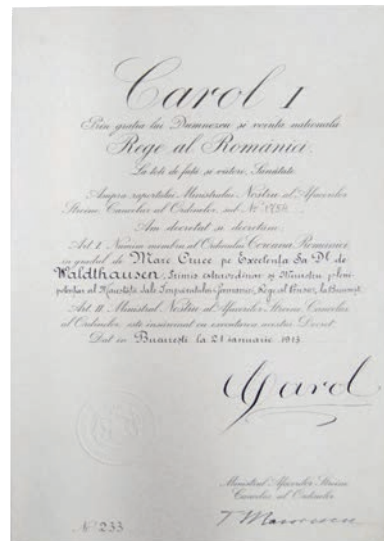 Carol I
Prin grația lui Dumnezeu și voința națională
Rege al României,
La toți de față și viitori, Sănătate.
Asupra raportului Ministrului Nostru al Afacerilor
Streine, Cancelar al Ordinelor, sub No 1754
Am decretat și decretăm:
Art. I. Numim membru al Ordinului Coroana României
în gradul de Mare Cruce pe Excelența Sa Dl de
Waldthausen, Trimis extraordinar și Ministru pleni-
potențiar al Maiestății Sale Împăratului Germaniei, Rege al Prusiei, la București.
Art. II. Ministrul Nostru al Afacerilor Streine, Cancelar
al Ordinelor, este însărcinat cu executarea acestui Decret.
Dat în București la 21 ianuarie 1913
Carol
Ministrul Afacerilor Streine
Cancelar al Ordinelor
No 233